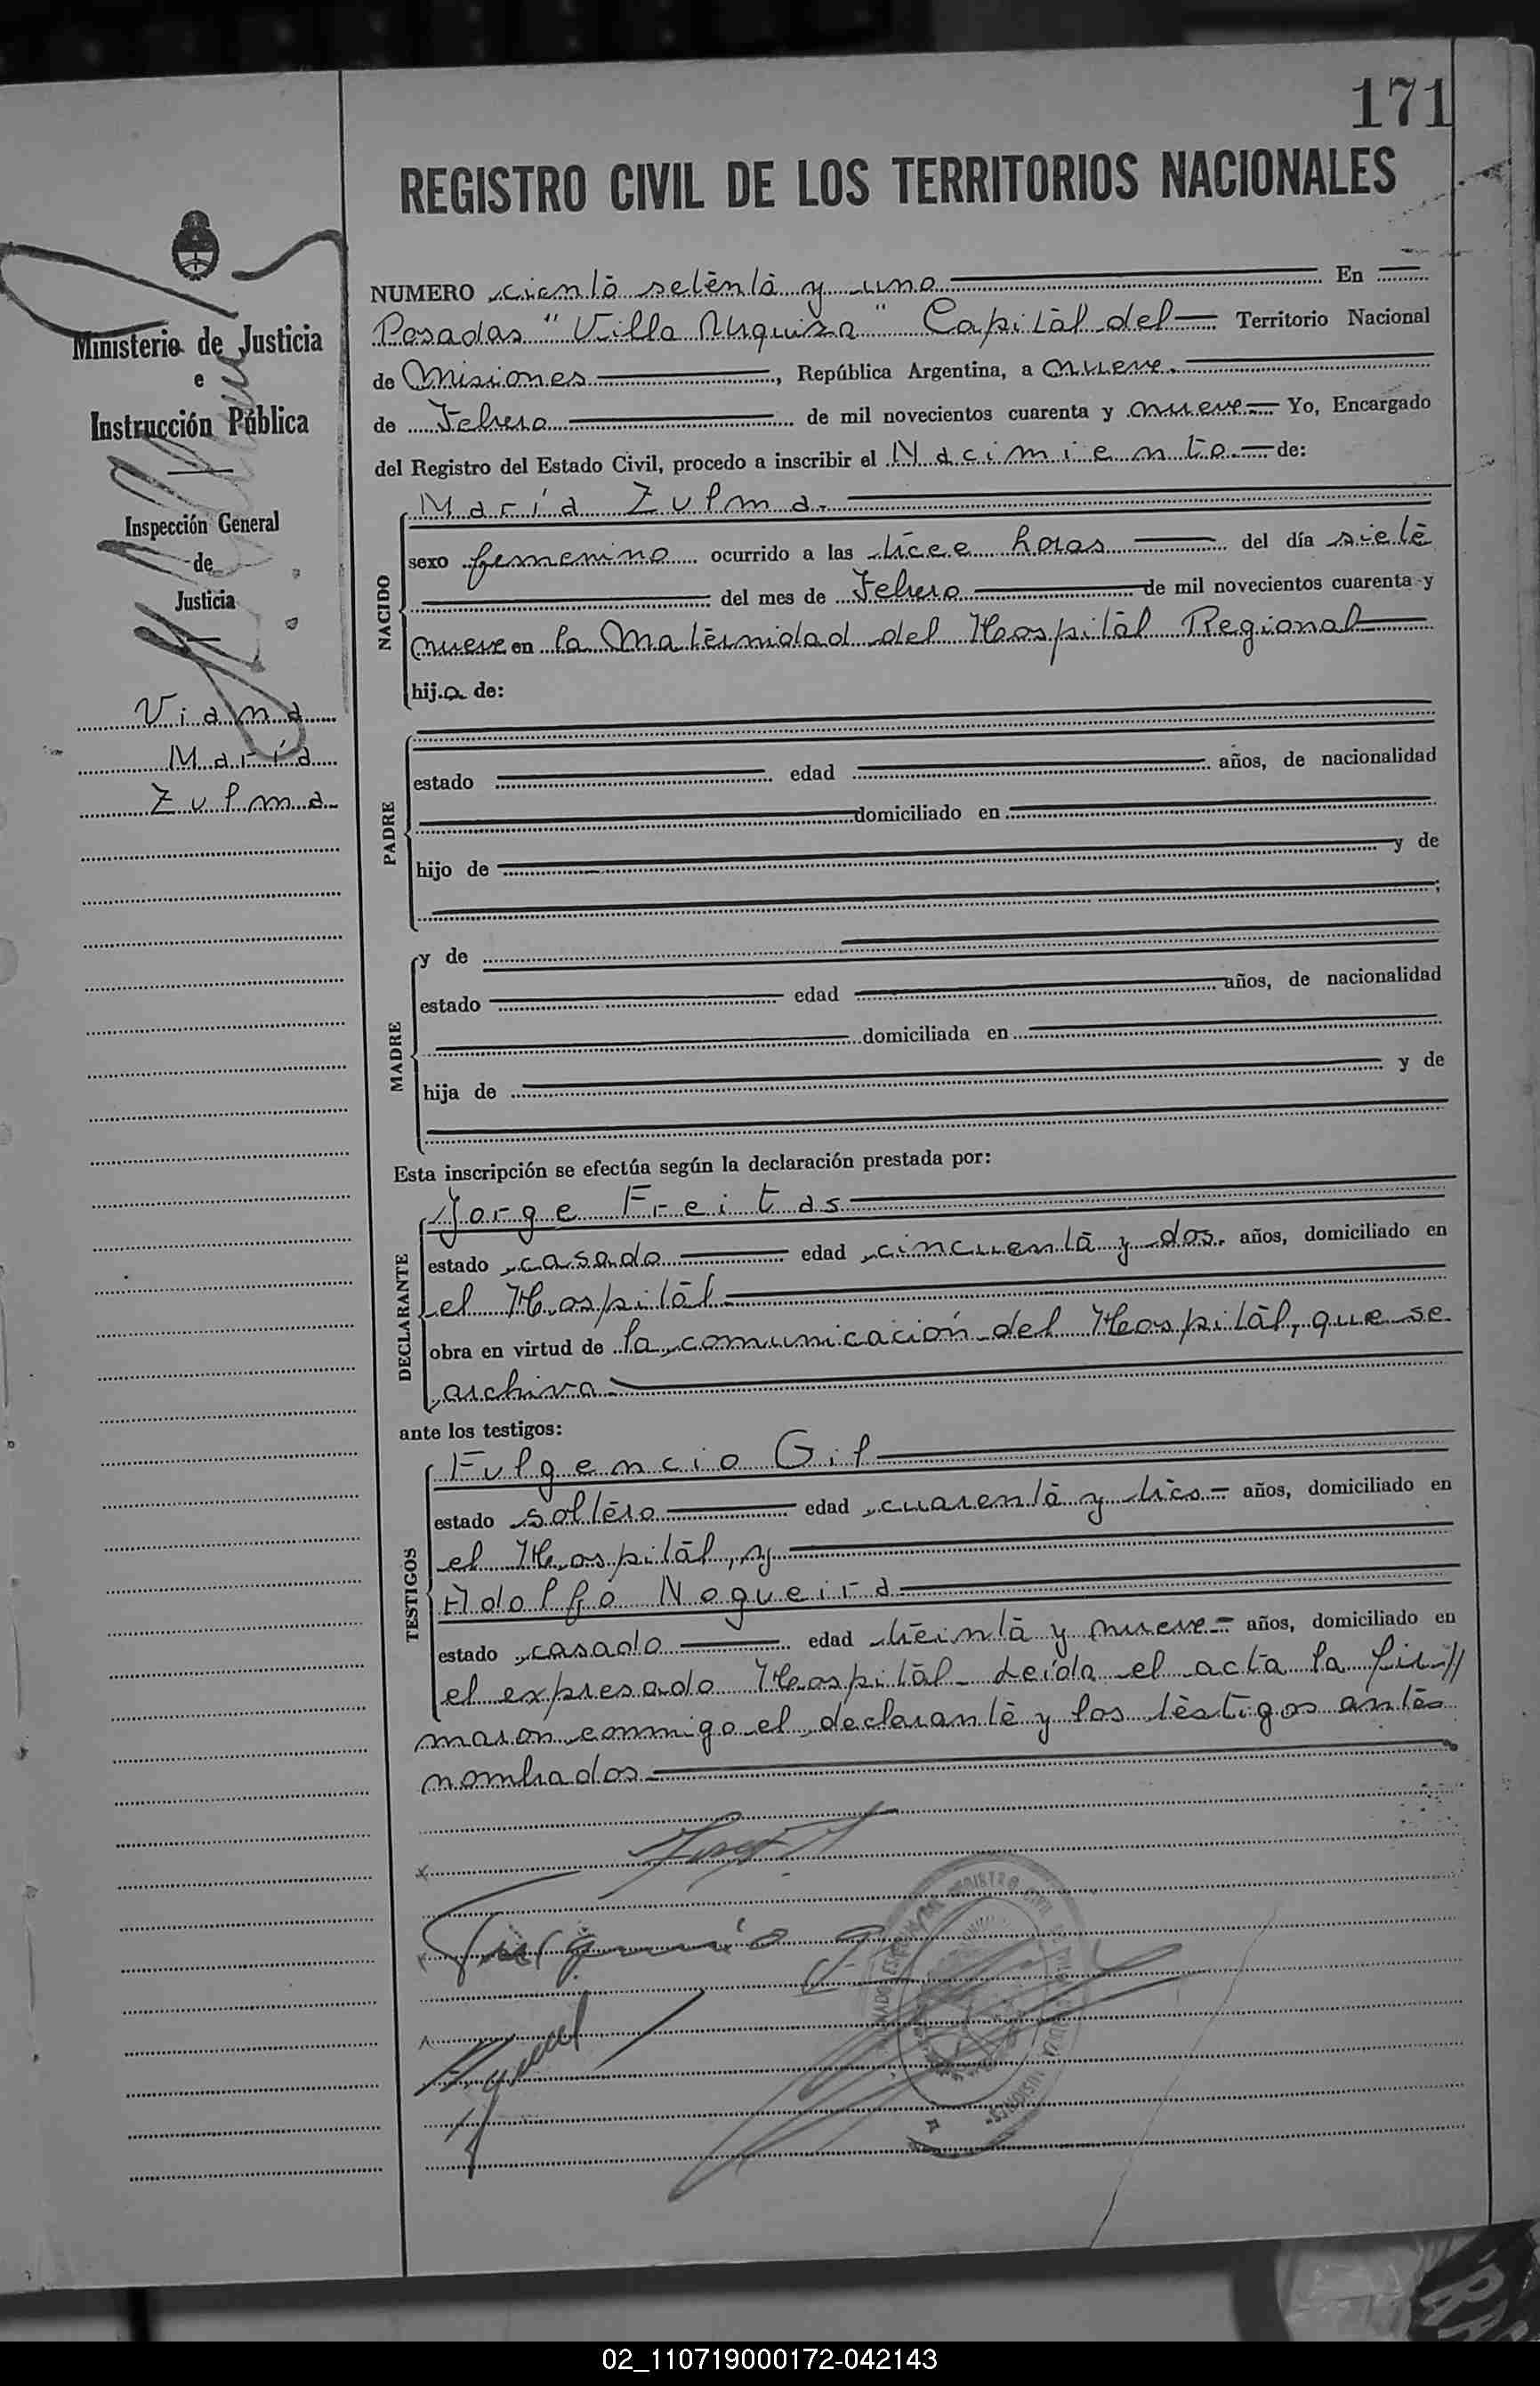 171
REGISTRO CIVIL DE LOS TERRITORIOS NACIONALES
Ministerio de Justicia
e
Instrucción Pública
Inspección General
de
Justicia
Viana
María
Zulma
NUMERO ciento setenta y uno En
Posadas "Villa Urquiza" Capital del Territorio Nacional
de Misiones, República Argentina, a nueve
de Febrero de mil novecientos cuarenta y nueve Yo, Encargado
del Registro del Estado Civil, procedo a inscribir el Nacimiento de:
NACIDO
María Zulma
sexo femenino ocurrido a las trece horas del día siete
del mes de Febrero de mil novecientos cuarenta y
nueve en la Maternidad del Hospital Regional
hija de:
PADRE
estado edad años, de nacionalidad
domiciliado en
hijo de y de
;
MADRE
y de
estado edad años, de nacionalidad
domiciliada en
hija de y de
Esta inscripción se efectúa según la declaración prestada por:
DECLARANTE
Jorge Freitas
estado casado edad cincuenta y dos. años, domiciliado en
el Hospital
obra en virtud de la comunicación del Hospital, que se
archiva
ante los testigos:
TESTIGOS
Fulgencio Gil
estado soltero edad cuarenta y tres años, domiciliado en
el Hospital, y
Adolfo Nogueira
estado casado edad treinta y nueve años, domiciliado en
el expresado Hospital. Leída el acta la fir//
maron conmigo el declarante y los testigos antes
nombrados
REGISTRO CIVIL
MISIONES
02_110719000172-042143